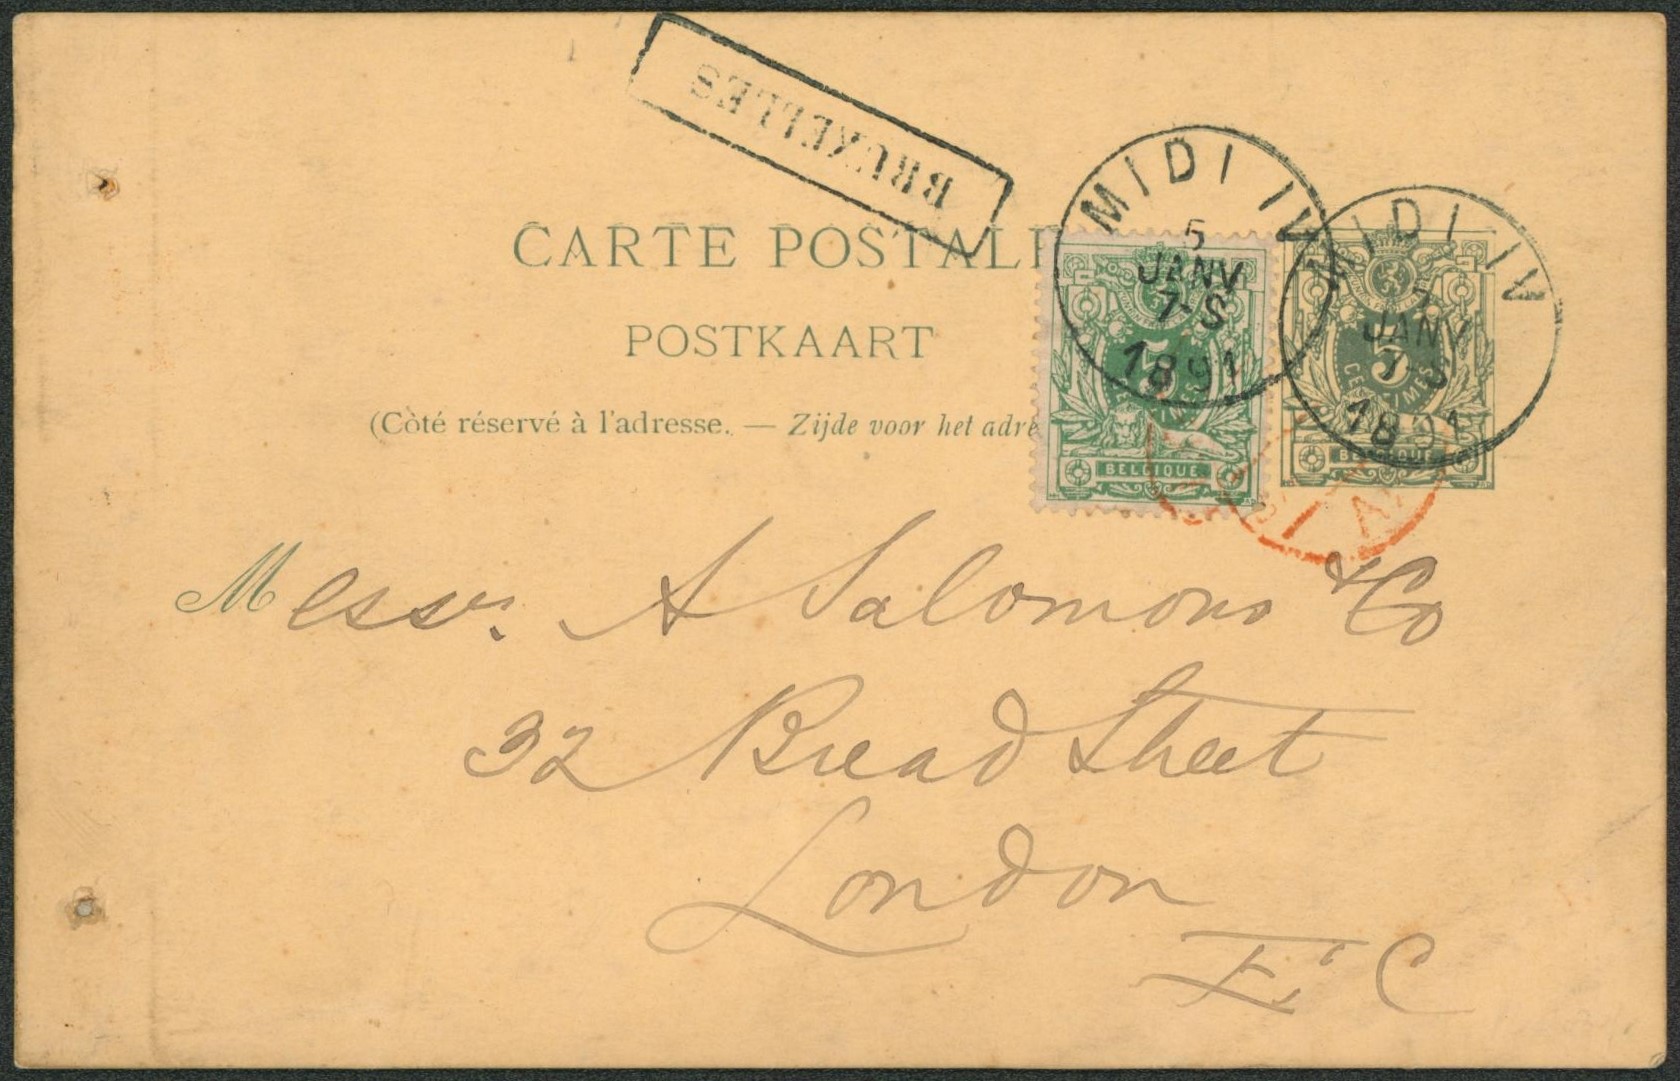 BRUXELLES
CARTE POSTALE
POSTKAART
(Côté réservé à l'adresse. — Zijde voor het adre
MIDI IV
5
JANV
7-S
1891
MIDI IV
JANV
7-S
1891
5
CENTIMES
BELGIQUE
BELGIQUE
Messrs. A Salomons & Co
32 Bread Street
London
E.C